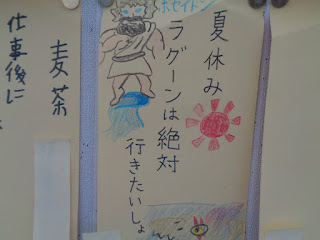 夏休み
ラグーンは絶対
行きたいしょ
ポセイドン
麦茶
仕事後に